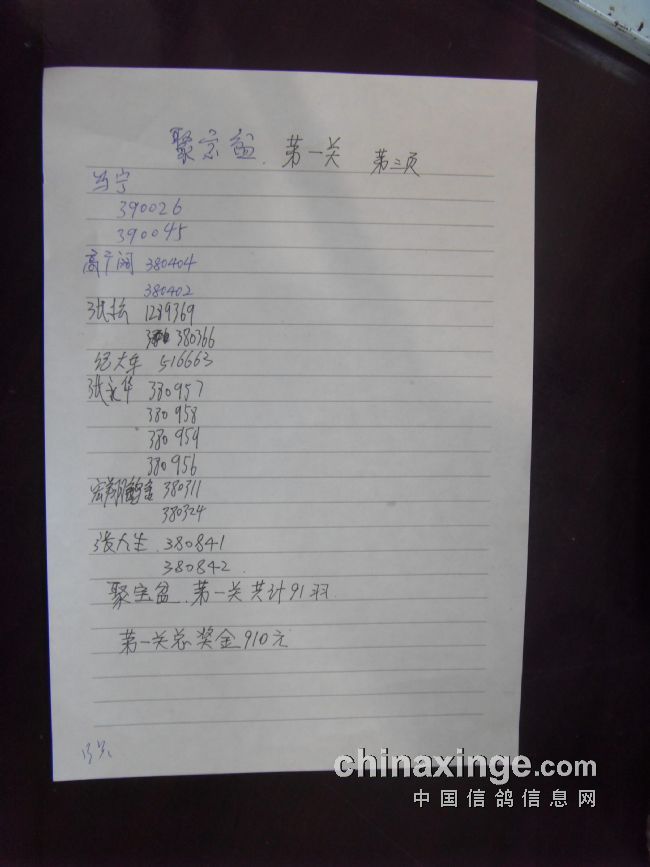 聚宝盆. 第一关 第三页
马宁
390026
390045
高广阔 380404
380402
张松 1239369
380366
纪大年 516663
张永华 380957
380958
380959
380956
宏翔鸽舍 380311
380324
张人生 380841
380842.
聚宝盆.第一关共计91羽.
第一关总奖金910元
chinaxinge.com
中国信鸽信息网